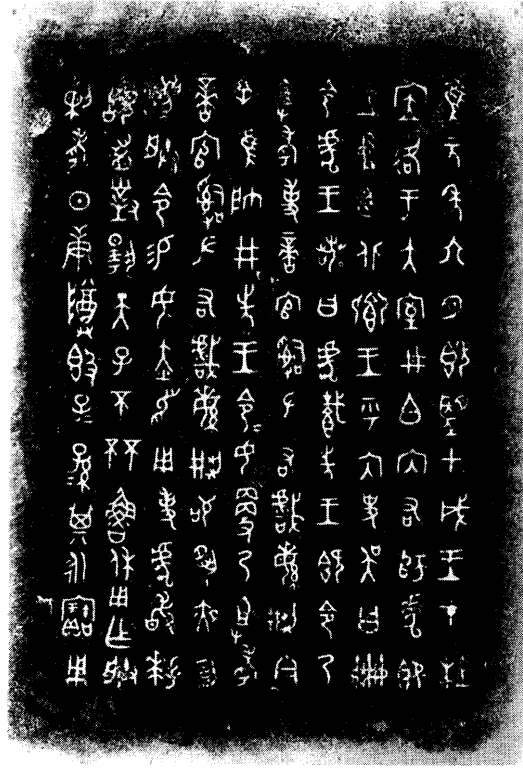 隹元年六月既望甲戌王才杜
居各于大室井白內右師虎即
立中廷北鄉王乎內史吳曰冊
令虎王若曰虎𩛥先王既令乃
祖考事啻官𤔲左右戲繁荊今
余隹帥井先王令令女更乃祖考
啻官𤔲左右戲繁荊敬夙夜勿
灋朕令易女赤舄用事虎敢拜
𩒨首對揚天子不杯魯休用乍朕
剌考日庚尊𣪘子=孫=其永寶用